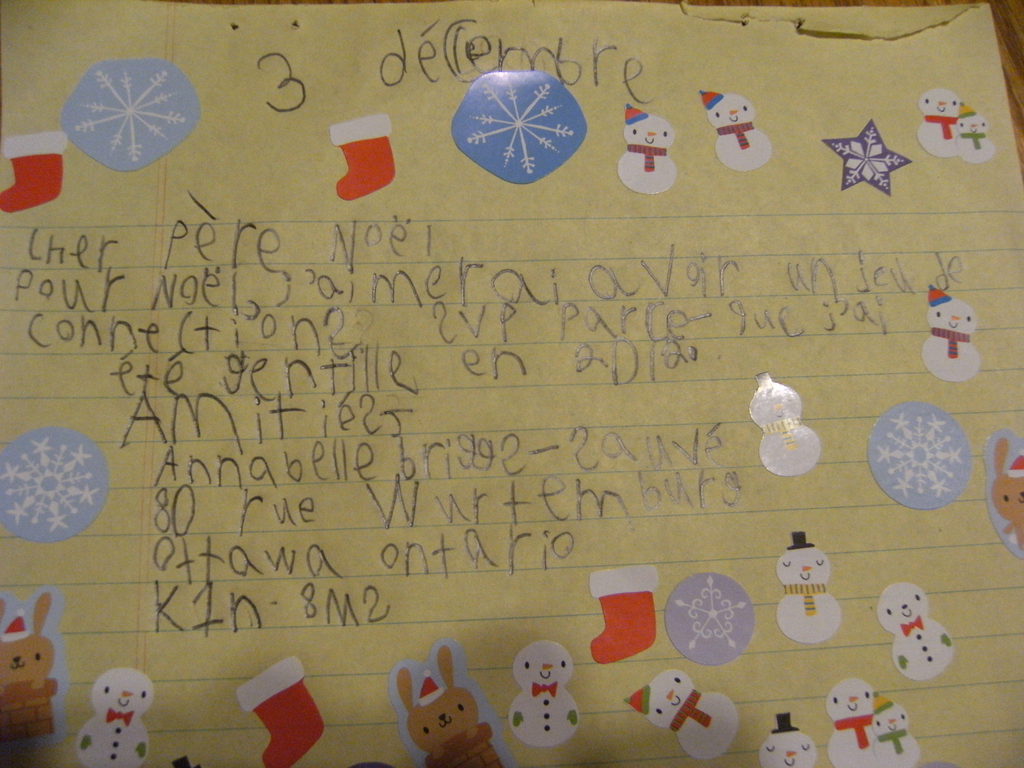 3 décembre
Cher Père Noël
Pour Noël, j'aimerai avoir un jeu de
connections svp parce-que j'ai
été gentille en 2012
Amitiés,
Annabelle briggs-sauvé
80 rue Wurtemburg
Ottawa ontario
K1n 8M2